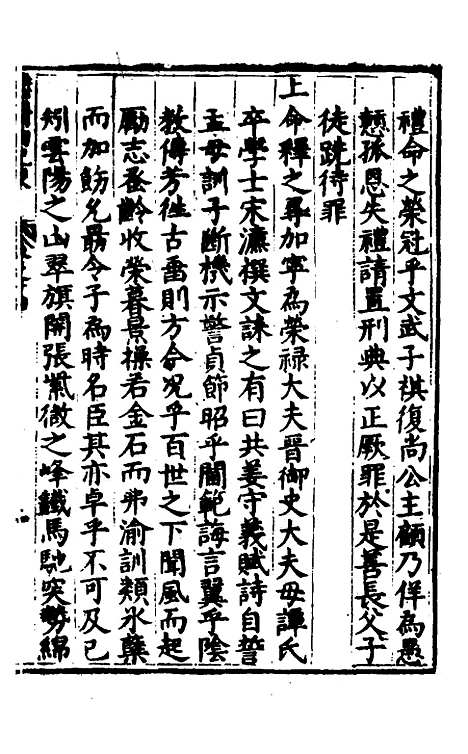 禮命之榮冠乎文武子祺復尚公主顧乃佯為愚
戅孤恩失禮請置刑典以正厥罪於是善長父子
徒跣待罪
上命釋之尋加寧為榮祿大夫晉御史大夫母譚氏
卒學士宋濂撰文誄之有曰共姜守義賦詩自誓
孟母訓子斷機示警貞節昭乎閫範誨言翼乎陰
教傳芳徃古垂則方今况乎百世之下聞風而起
勵志耋齡收榮暮景操若金石而弗渝訓類氷櫱
而加飭允昜令子為時名臣其亦卓乎不可及已
矧雲陽之山翠旗開張紫微之峰鐵馬馳突勢綿